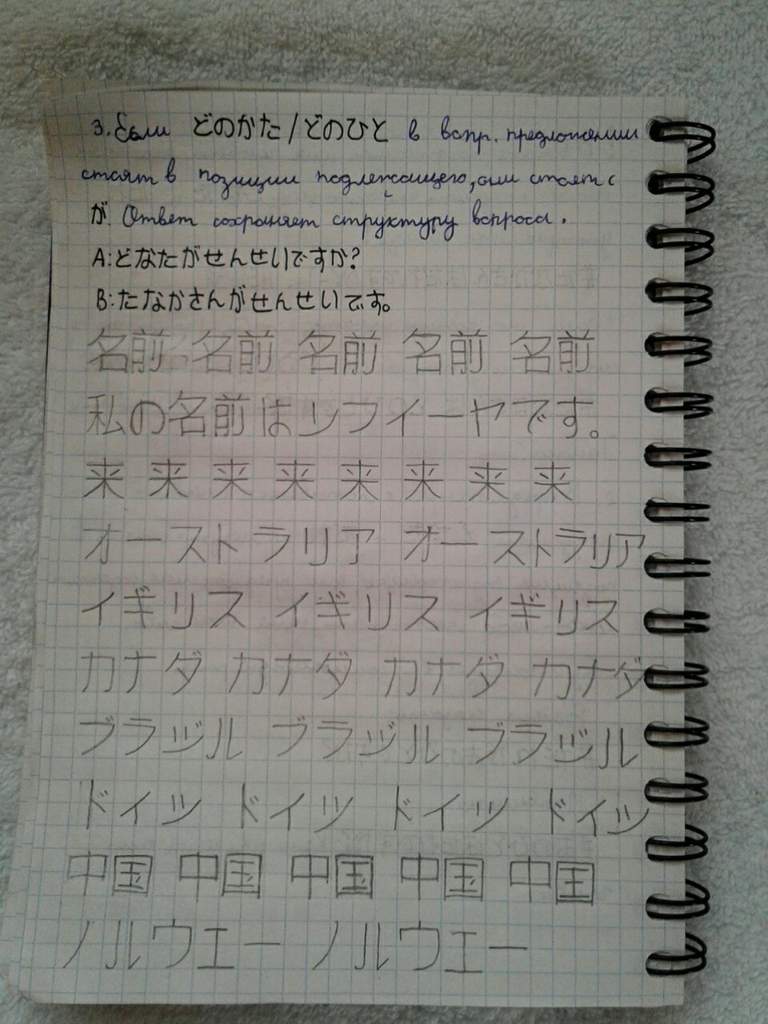 3. Если どのかた/どのひと в вопр. предложении
стоят в позиции подлежащего, они стоят с
が. Ответ сохраняет структуру вопроса.
A:どなたがせんせいですか?
B:たなかさんがせんせいです。
名前 名前 名前 名前 名前
私の名前はソフイーヤです。
来 来 来 来 来 来 来 来
オーストラリア オーストラリア
イギリス イギリス イギリス
カナダ カナダ カナダ カナダ
ブラジル ブラジル ブラジル
ドイツ ドイツ ドイツ ドイツ
中国 中国 中国 中国 中国
ノルウエー ノルウエー